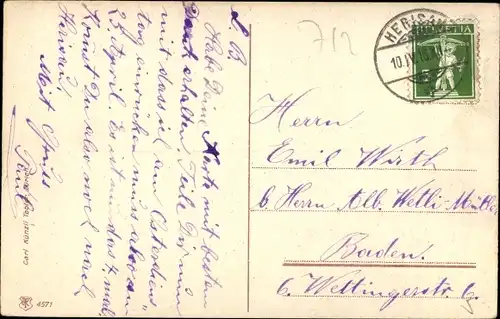 L. B.
Habe Deine Karte mit bestem
Dank erhalten. Teile Dir nun
mit dass ich am Osterdiens-
tag einrücken muss
25. April. Es ist nun das 4. mal.
Kommst Du also noch nach
Herisau,
Mit Gruss
712
HERISAU
10.IV.
HELVETIA
Herrn
Emil Wirth
b/ Herrn Alb. Wetli-Müller
Baden.
6. Wettingerstr. 6.
Carl Künzli
4571